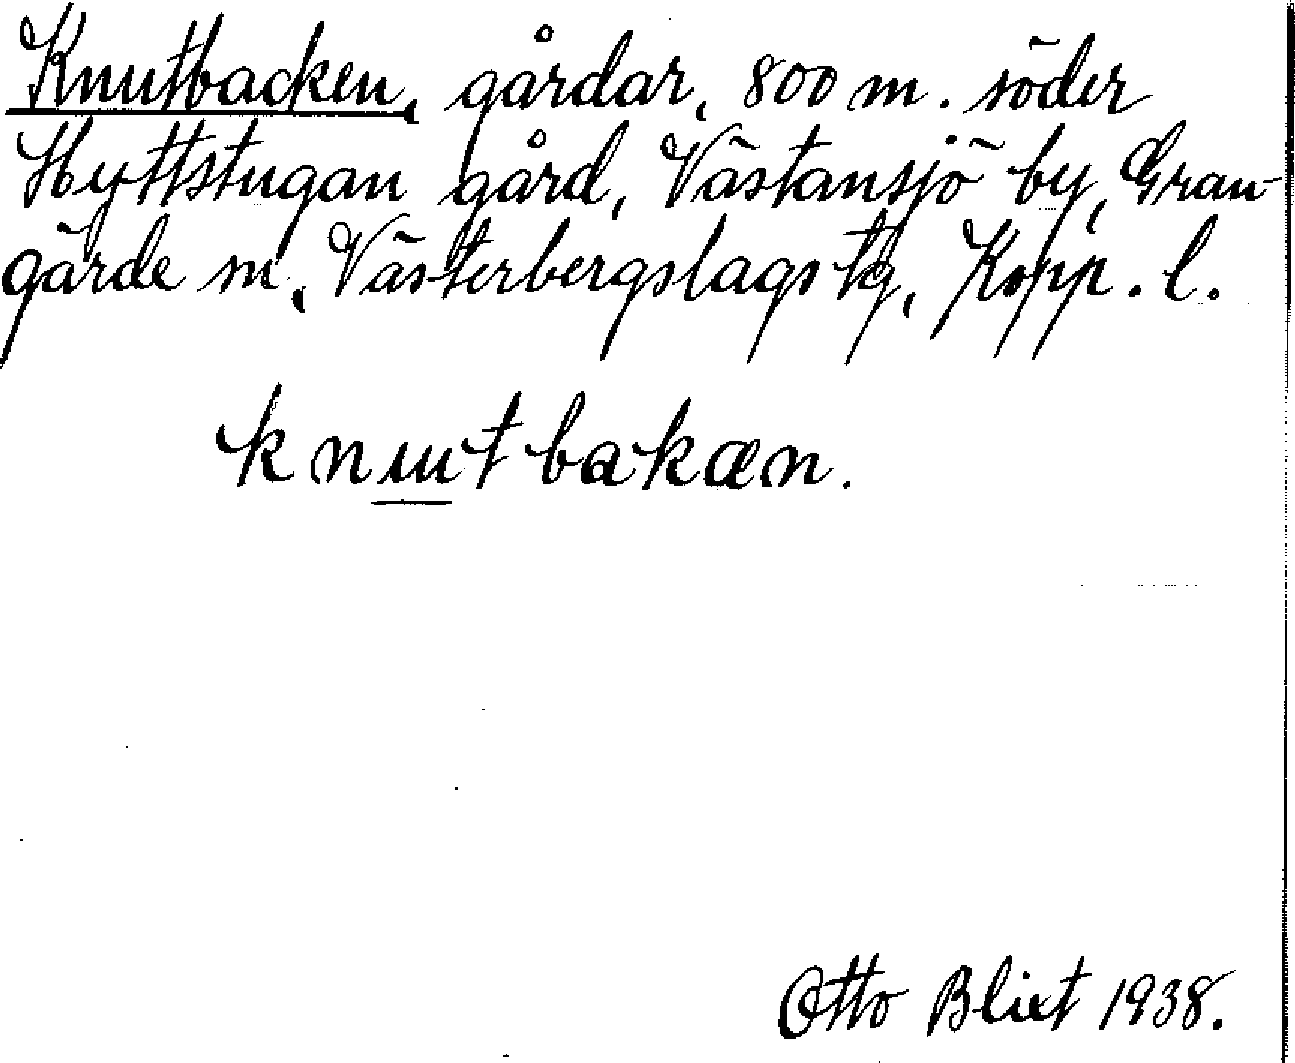 Knutbacken, gårdar, 800 m. söder
Hyttstugan gård, Västansjö by, Gran-
gärde sn, Västerbergslags tg, Kopp. l.
knuutbakæn.
Otto Blixt 1938.